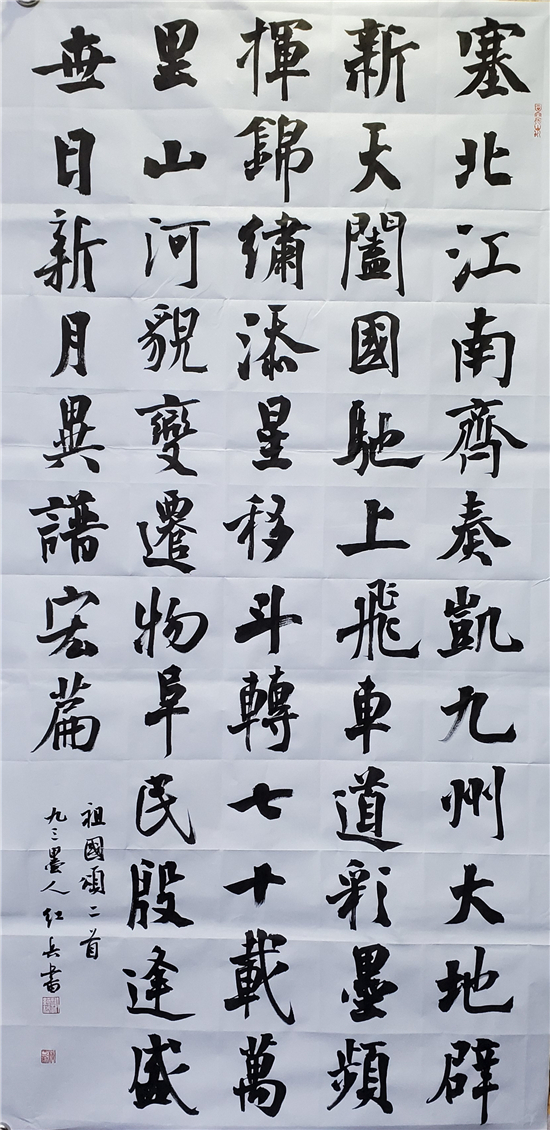 塞北江南齊奏凱九州大地辟
新天闔國馳上飛車道彩墨頻
揮錦繡添星移斗轉七十載萬
里山河貌變遷物阜民殷逢盛
世日新月異譜宏篇
祖國頌二首
九三墨人紅兵書